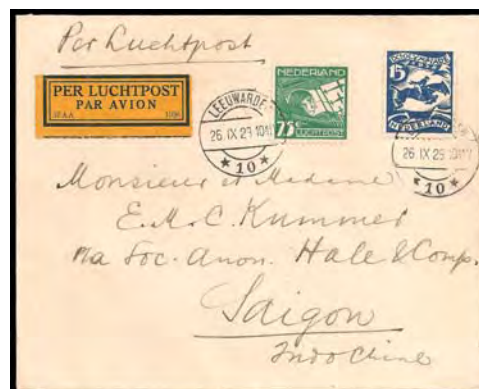 Per Luchtpost
PER LUCHTPOST
PAR AVION
NEDERLAND
75
LUCHTPOST
15
NEDERLAND
LEEUWARDE
26.IX.29.10
* 10 *
26.IX.29.10
* 10 *
Monsieur et Madame
E.M.C. Kummer
Soc. Anon. Hale & Comp.
Saigon
Indo Chine